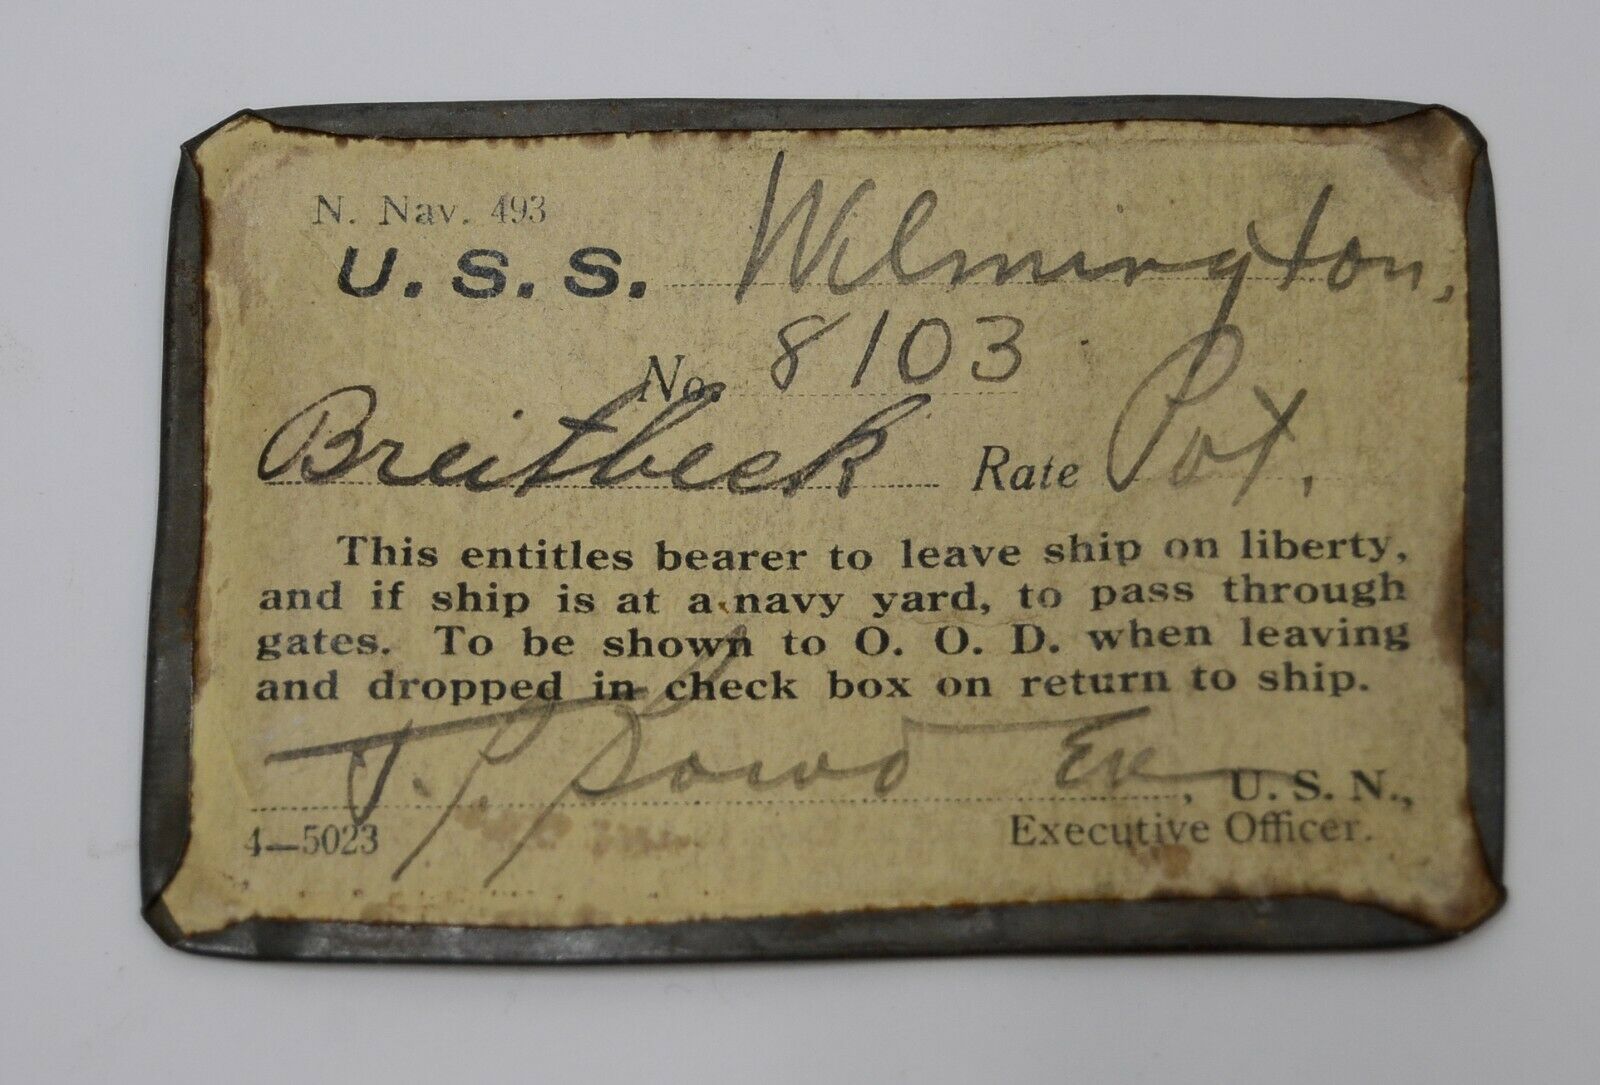 N. Nav. 493
U. S. S. Wilmington,
No. 8103
Breitbeck Rate Pot,
This entitles bearer to leave ship on liberty,
and if ship is at a navy yard, to pass through
gates. To be shown to O. O. D. when leaving
and dropped in check box on return to ship.
J. P. Dowd, U. S. N.,
4—5023 Executive Officer.